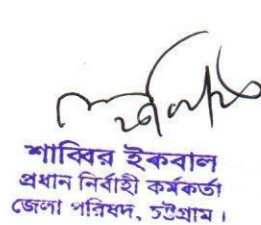 শাব্বির ইকবাল
প্রধান নির্বাহী কর্মকর্তা
জেলা পরিষদ, চট্টগ্রাম।